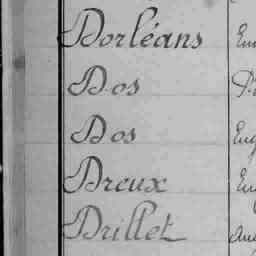 Dorléans
Dos
Dos
Dreux
Drillet